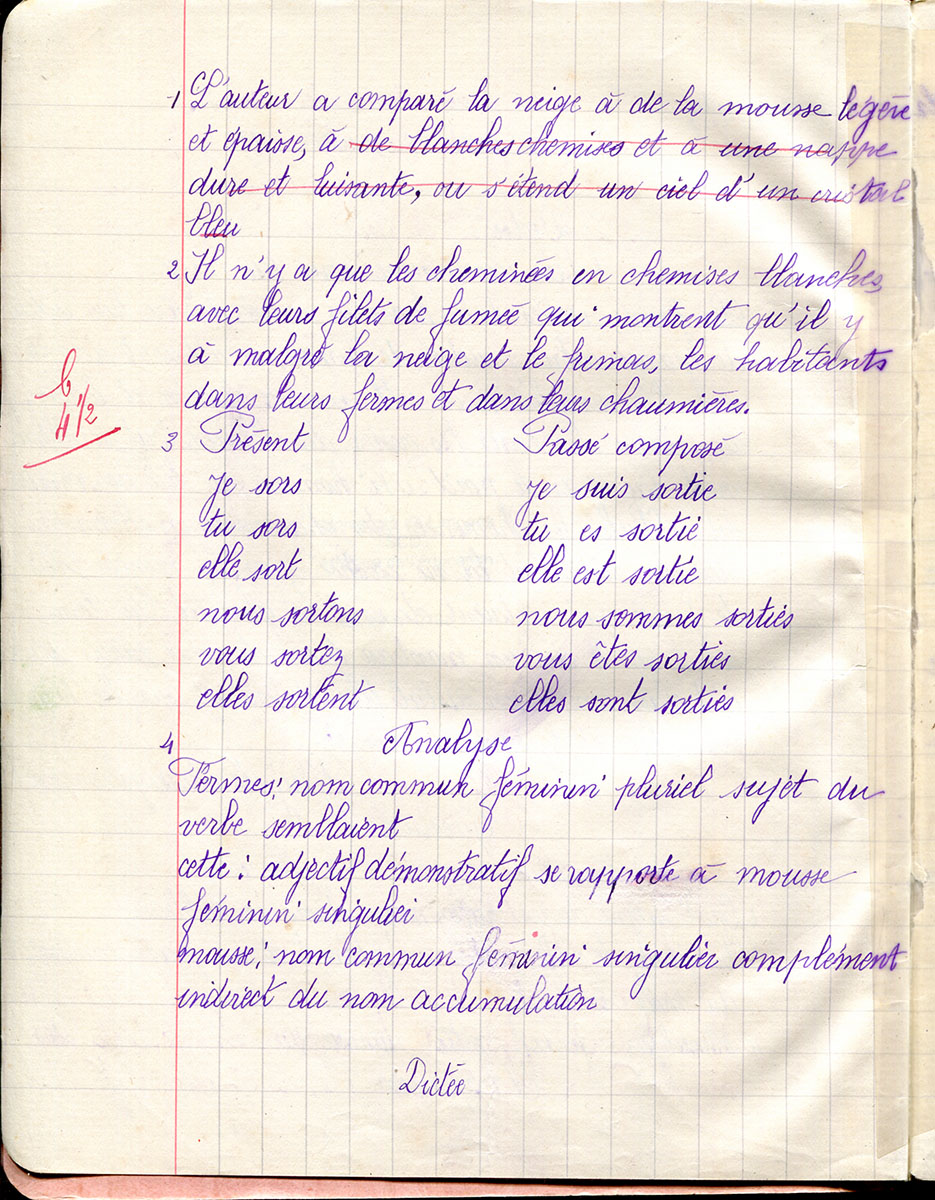 1 L'auteur a comparé la neige à de la mousse légère
et épaisse, à de blanches chemises et à une nappe
dure et luisante, ou s'étend un ciel d'un cristal
bleu
2 Il n'y a que les cheminées en chemises blanches,
avec leurs filets de fumée qui montrent qu'il y
à malgré la neige et le frimas, les habitants
dans leurs fermes et dans leurs chaumières.
b
4 1/2
3 Présent Passé composé
je sors je suis sortie
tu sors tu es sortie
elle sort elle est sortie
nous sortons nous sommes sorties
vous sortez vous êtes sorties
elles sortent elles sont sorties
4 Analyse
Fermes: nom commun féminin pluriel sujet du
verbe semblaient
cette: adjectif démonstratif se rapporte à mousse
féminin singulier
mousse: nom commun féminin singulier complément
indirect du nom accumulation
Dictée